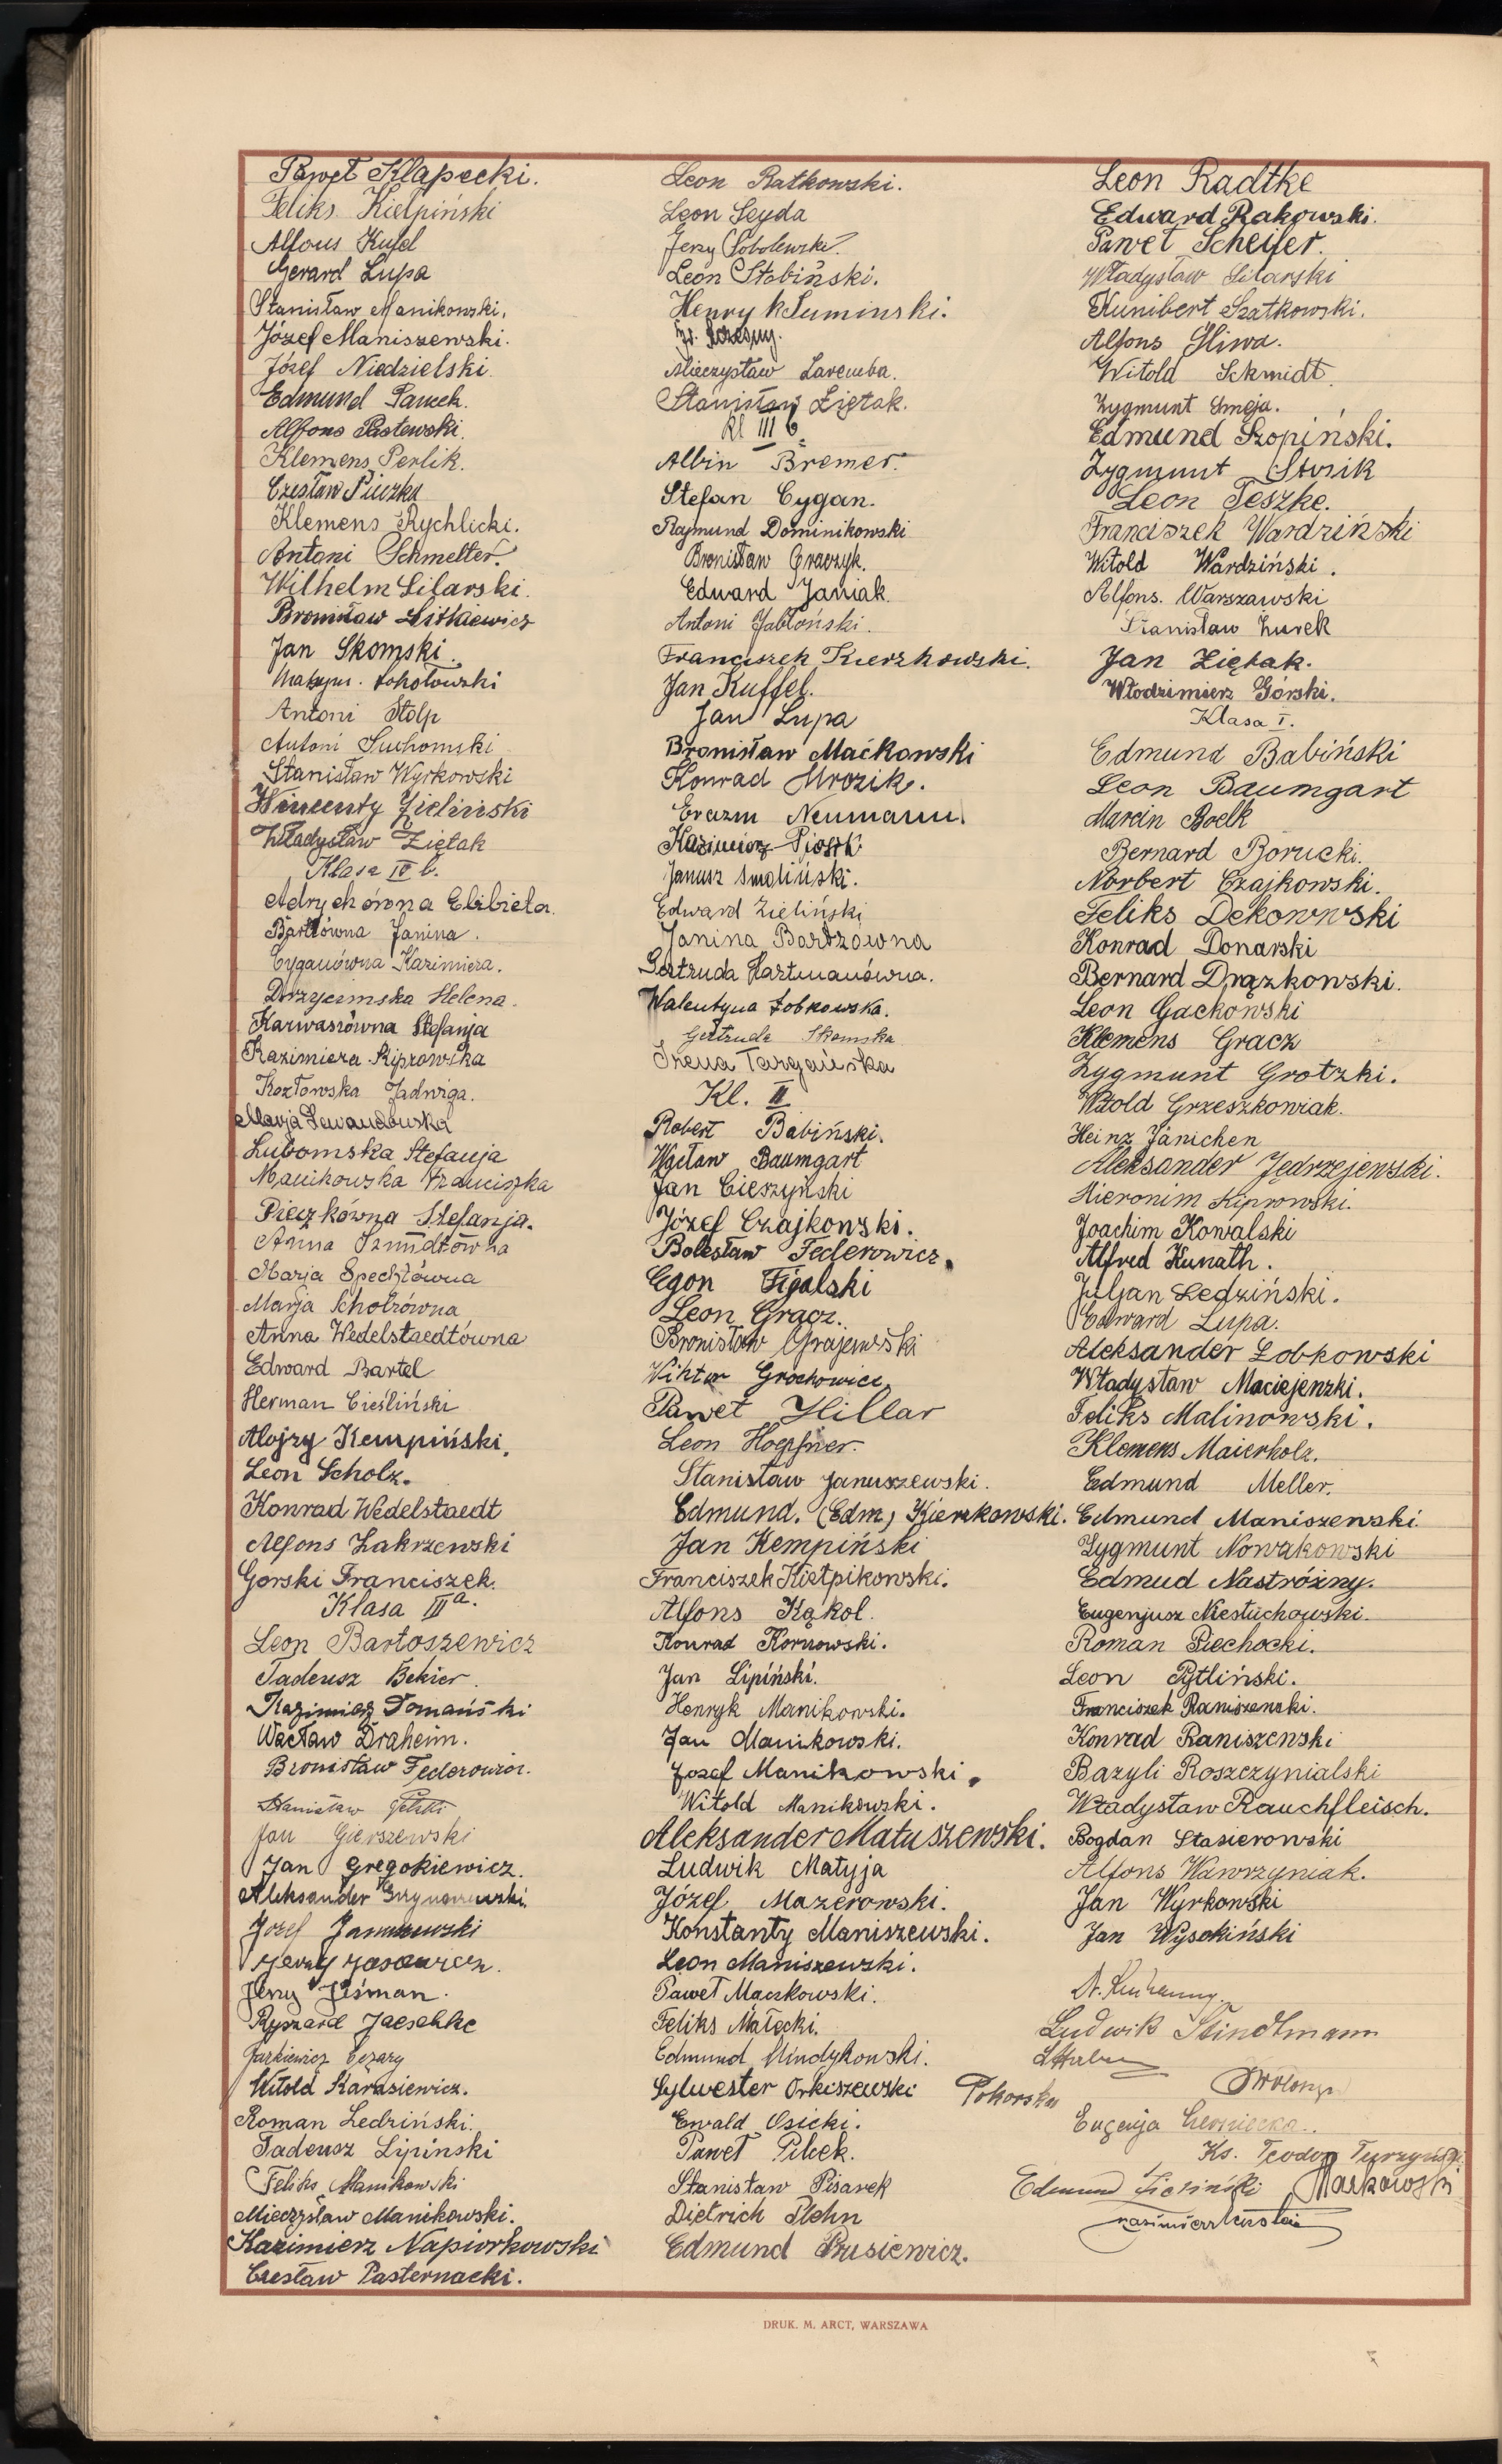 Paweł Klapecki.
Feliks Kiełpiński
Alfons Kufel
Gerard Lupa
Stanisław Manikowski.
Józef Maniszewski.
Józef Niedzielski
Edmund
Alfons Pastewski.
Klemens Perlik.
Czesław Puczka
Klemens Rychlicki.
Antoni Schmelter.
Wilhelm Silarski.
Bronisław
Jan Skomski.
Sokołowski
Antoni Stolp
Antoni Suchomski
Stanisław Wyrkowski
Wincenty Zieliński
Władysław Ziętak
Klasa IV b.
Adrychówna Elżbieta.
Janina.
Cyganówna Kazimiera.
Drzycimska Helena.
Karwaszówna Stefanja
Kazimiera Kiprowska
Kozłowska Jadwiga.
Marja Lewandowska
Lubomska Stefanja
Manikowska Franciszka
Pieczkówna Stefanja.
Anna Szmidtówna
Marja Spechtówna
Marja Scholzówna
Anna Wedelstaedtówna
Edward Bartel
Herman Cieśliński
Alojzy Kempiński.
Leon Scholz.
Konrad Wedelstaedt
Alfons Zakrzewski
Górski Franciszek.
Klasa III a.
Leon Bartoszewicz
Tadeusz Bekier.
Kazimierz Domański
Wacław Draheim.
Bronisław Federowicz.
Stanisław
Jan Gierszewski
Jan Gregorkiewicz.
Aleksander
Józef Januszewski
Jerzy
Jerzy Jeśman.
Ryszard Jaeschke
Jarkiewicz Cezary
Witold Karasiewicz.
Roman Ledziński.
Tadeusz Lipinski
Feliks Manikowski
Mieczysław Manikowski.
Kazimierz Napiórkowski
Czesław Pasternacki.
Leon Ratkowski.
Leon Seyda
Jerzy Sobolewski.
Leon Słobiński.
Henryk Suminski.
Fr. Szczęsny.
Mieczysław Zaremba.
Stanisław Ziętak.
Kl III b
Albin Bremer.
Stefan Cygan.
Rajmund Dominikowski
Bronisław Graczyk.
Edward Janiak.
Antoni Jabłoński.
Franciszek Kierzkowski.
Jan Kuffel.
Jan Lupa
Bronisław Maćkowski
Konrad Mrozik.
Erazm Neumann.
Kazimierz Piosik
Janusz Smoliński.
Edward Zieliński
Janina Bartzówna
Gertruda Hartmanówna.
Walentyna Łobkowska.
Gertruda Skomska
Irena Targańska
Kl. II
Robert Babiński.
Wacław Baumgart
Jan Cieszyński
Józef Czajkowski.
Bolesław Federowicz.
Egon Figalski
Leon Gracz.
Bronisław Grajewski
Wiktor Grochowicz
Paweł Hillar
Leon Hoepfner.
Stanisław Januszewski.
Edmund. (Edm) Kierzkowski.
Jan Kempiński
Franciszek Kiełpikowski.
Alfons Kąkol.
Konrad Kornowski.
Jan Lipiński.
Henryk Manikowski.
Jan Manikowski.
Józef Manikowski.
Witold Manikowski.
Aleksander Matuszewski.
Ludwik Matyja
Józef Mazerowski.
Konstanty Maniszewski.
Leon Maniszewski.
Paweł Mączkowski.
Feliks Małecki.
Edmund Mindykowski.
Sylwester Orkiszewski
Ewald Osicki.
Paweł Pilcek.
Stanisław Pisarek
Dietrich Plehn
Edmund Prusiewicz.
Leon Radtke
Edward Rakowski.
Paweł Scheifer.
Władysław Silarski
Kunibert Szatkowski.
Alfons Śliwa.
Witold Schmidt.
Zygmunt Smeja.
Edmund Szopiński.
Zygmunt
Leon Teszke.
Franciszek Wardziński
Witold Wardziński.
Alfons. Warszawski
Stanisław Żurek
Jan Ziętak.
Włodzimierz Górski.
Klasa I.
Edmund Babiński
Leon Baumgart
Marcin Boelk
Bernard Borucki.
Norbert Czajkowski.
Feliks Dekowski
Konrad Donarski
Bernard Drązkowski.
Leon Gackowski
Klemens Gracz
Zygmunt Grotzki.
Witold Grzeszkowiak.
Heinz Jänichen
Aleksander Jędrzejewski.
Hieronim Kiprowski.
Joachim Kowalski
Alfred Kunath.
Juljan Ledziński.
Edward Lupa.
Aleksander Łobkowski
Władysław Maciejewski.
Feliks Malinowski.
Klemens Maierholz.
Edmund Meller.
Edmund Maniszewski.
Zygmunt Nowakowski
Edmud Nastróżny.
Eugenjusz Niestuchowski.
Roman Piechocki.
Leon Pytliński.
Franciszek Raniszewski.
Konrad Raniszewski
Bazyli Roszczynialski
Władysław Rauchfleisch.
Bogdan Stasierowski
Alfons Wawrzyniak.
Jan Wyrkowski
Jan Wysokiński
Ludwik Stindtmann
Pokorska
Eugenja
Ks. Teodor
Edmund Zieliński Markowski
DRUK. M. ARCT, WARSZAWA